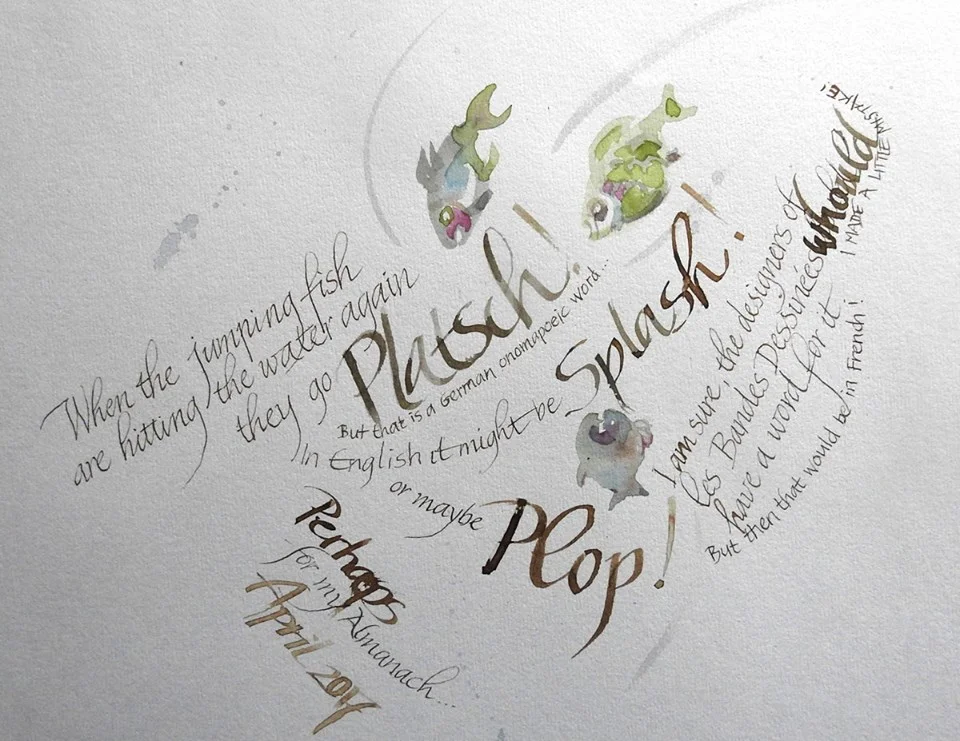 When the jumping fish
are hitting the water again
they go Platsch!
But that is a German onomapoeic word...
In English it might be Splash!
or maybe Plop!
I am sure, the designers of
Les Bandes Dessinées whould
I MADE A LITTLE MISTAKE!
have a word for it
But then that would be in French!
Perhaps
for my Almanach...
April